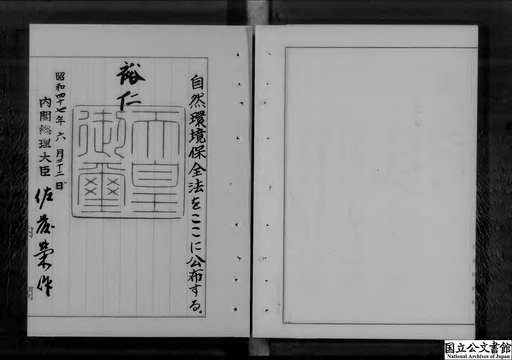 自然環境保全法をここに公布する。
裕仁
天皇
御璽
昭和四十七年六月二十二日
内閣総理大臣 佐藤榮作
国立公文書館
National Archives of Japan